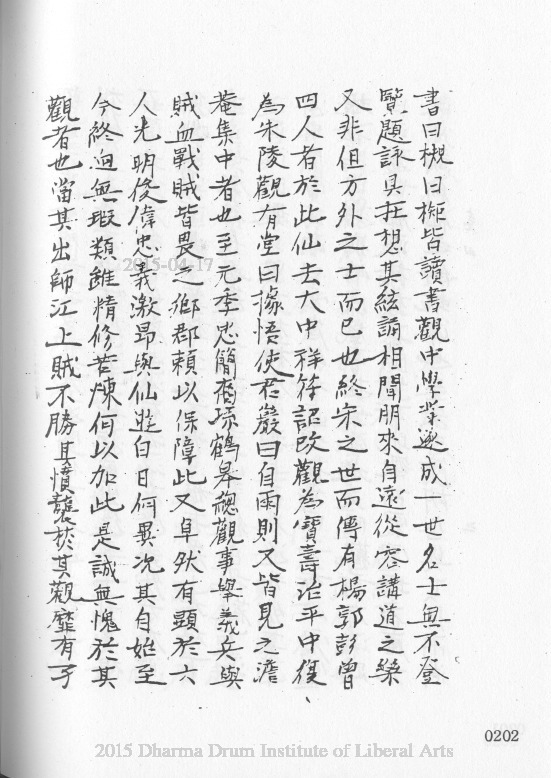 書曰槻曰榧皆讀書觀中學業遂成一世名士無不登
覽題詠具在想其絃誦相聞朋來自遠從容講道之樂
又非但方外之士而已也終宋之世而傳有楊郭彭曾
四人者於此仙去大中祥符詔改觀為寶壽治平中復
為朱陵觀有堂曰據悟使君巖曰自雨則又皆見之澹
菴集中者也至元季忠簡裔孫鶴皋總觀事舉義兵與
賊血戰賊皆畏之鄉郡賴以保障此又卓然有顯於六
人光明俊偉忠義激昂與仙遊白日何異況其自始至
今終迫無瑕類雖精修苦煉何以加此是誠無愧於其
觀者也當其出師江上賊不勝其憤襲於其觀靡有孑
2015-04-17
0202
2015 Dharma Drum Institute of Liberal Arts